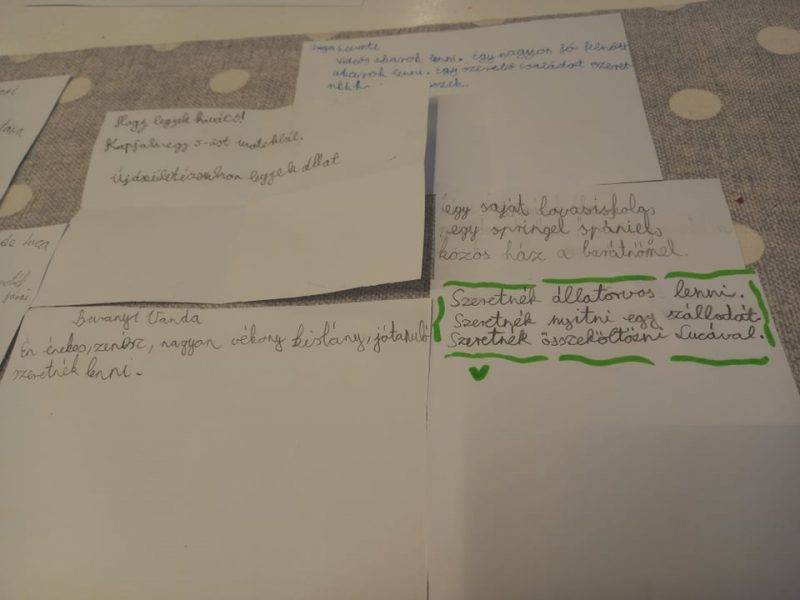 Videós akarok lenni. Egy nagyon jó felnőtt
akarok lenni. Egy szerető családot szeret
Hogy legyek kíváncsi!
Kapjak egy 5-öst matekból.
legyek állat
egy saját lovasiskola,
egy springel spániel,
közös ház a barátnőmel.
Szeretnék állatorvos lenni.
Szeretnék nyitni egy szállodát.
Szeretnék összeköltözni Lucával.
Vanda
Én énekes, zenész, nagyon vékony kislány, jótanuló
szeretnék lenni.